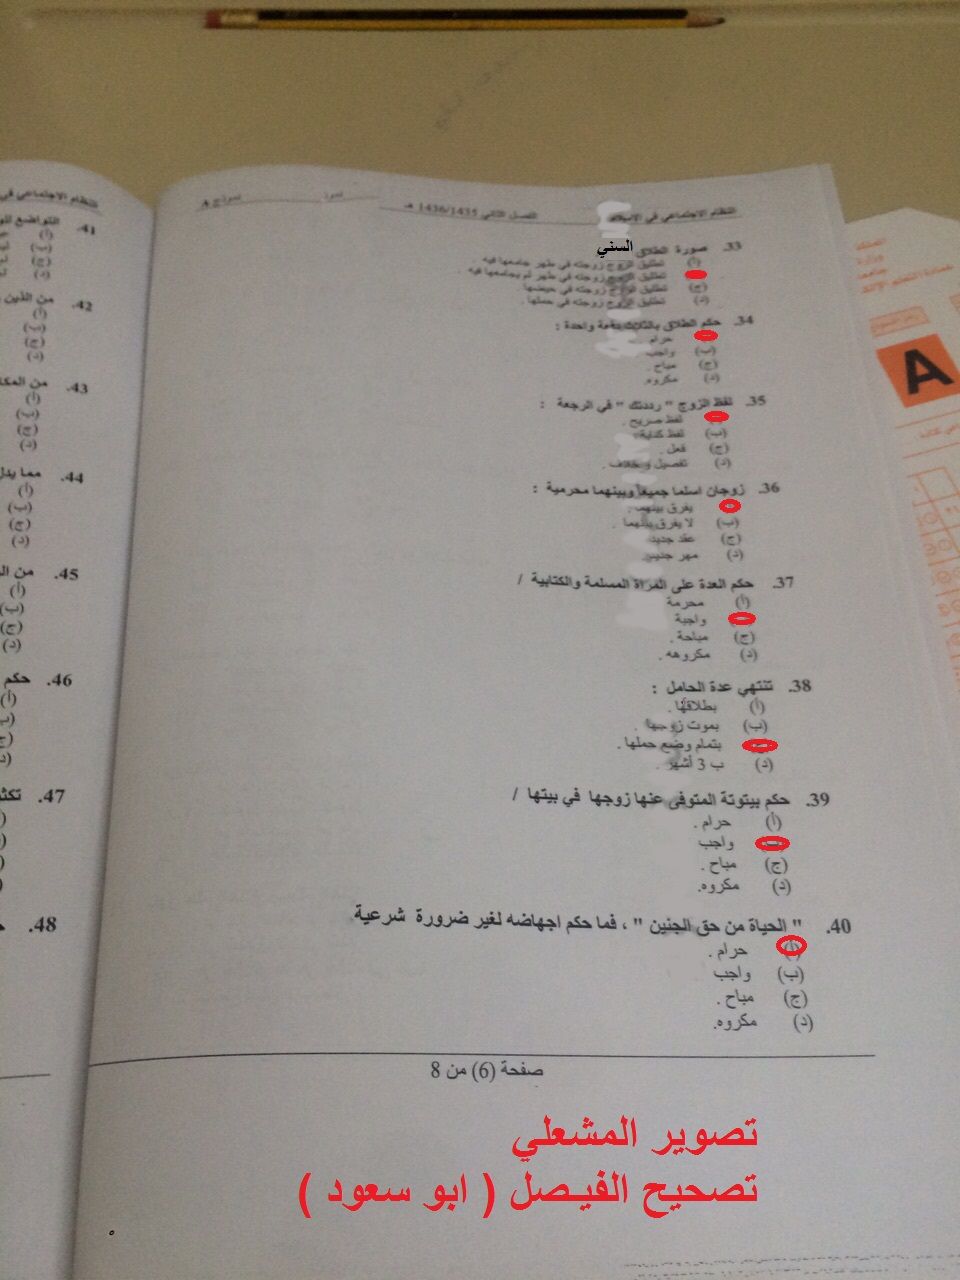 النظام الاجتماعي في الإسلام
الفصل الثاني 1436/1435 هـ
نموذج A
33. صورة الطلاق السني
(أ) تطليق الزوج زوجته في طهر جامعها فيه .
تطليق الزوج زوجته في طهر لم يجامعها فيه .
(ج) تطليق الزوج زوجته في حيضها .
(د) تطليق الزوج زوجته في حملها .
34. حكم الطلاق بالثلاث دفعة واحدة :
حرام .
(ب) واجب
(ج) مباح .
(د) مكروه.
35. لفظ الزوج " رددتك " في الرجعة :
لفظ صريح .
(ب) لفظ كناية.
(ج) فعل .
(د) تفصيل وخلاف .
36. زوجان اسلما جميعا وبينهما محرمية :
يفرق بينهما .
(ب) لا يفرق بينهما .
(ج) عقد جديد
(د) مهر جديد
37. حكم العدة على المرأة المسلمة والكتابية /
(أ) محرمة
واجبة
(ج) مباحة .
(د) مكروهه .
38. تنتهي عدة الحامل :
(أ) بطلاقها .
(ب) بموت زوجها .
بتمام وضع حملها .
(د) ب 3 أشهر .
39. حكم بيتوتة المتوفى عنها زوجها في بيتها /
(أ) حرام .
واجب
(ج) مباح .
(د) مكروه.
40. " الحياة من حق الجنين " ، فما حكم اجهاضه لغير ضرورة شرعية
(أ) حرام .
(ب) واجب
(ج) مباح .
(د) مكروه.
صفحة (6) من 8
تصوير المشعلي
تصحيح الفيصل ( ابو سعود )
النظام الاجتماعي في
41. التواضع
(أ)
(ب)
(ج)
(د)
42. من الذين
(أ)
(ب)
(ج)
(د)
43. من
(أ)
(ب)
(ج)
(د)
44. مما يدل
(أ)
(ب)
(ج)
(د)
45. من
(أ)
(ب)
(ج)
(د)
46. حكم
(أ)
(د)
47.
48.
A